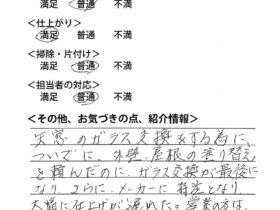 満足 普通 不満
<仕上がり>
満足 普通 不満
<掃除・片付け>
満足 普通 不満
<担当者の対応>
満足 普通 不満
<その他、お気づきの点、紹介情報>
天窓のガラス交換をする為に、
ついでに、外壁、屋根の塗り替え
を頼んだのに、ガラス交換が最後に
なり、さらに、メーカーに特注となり、
大幅に仕上げが遅れた。営業の方は、